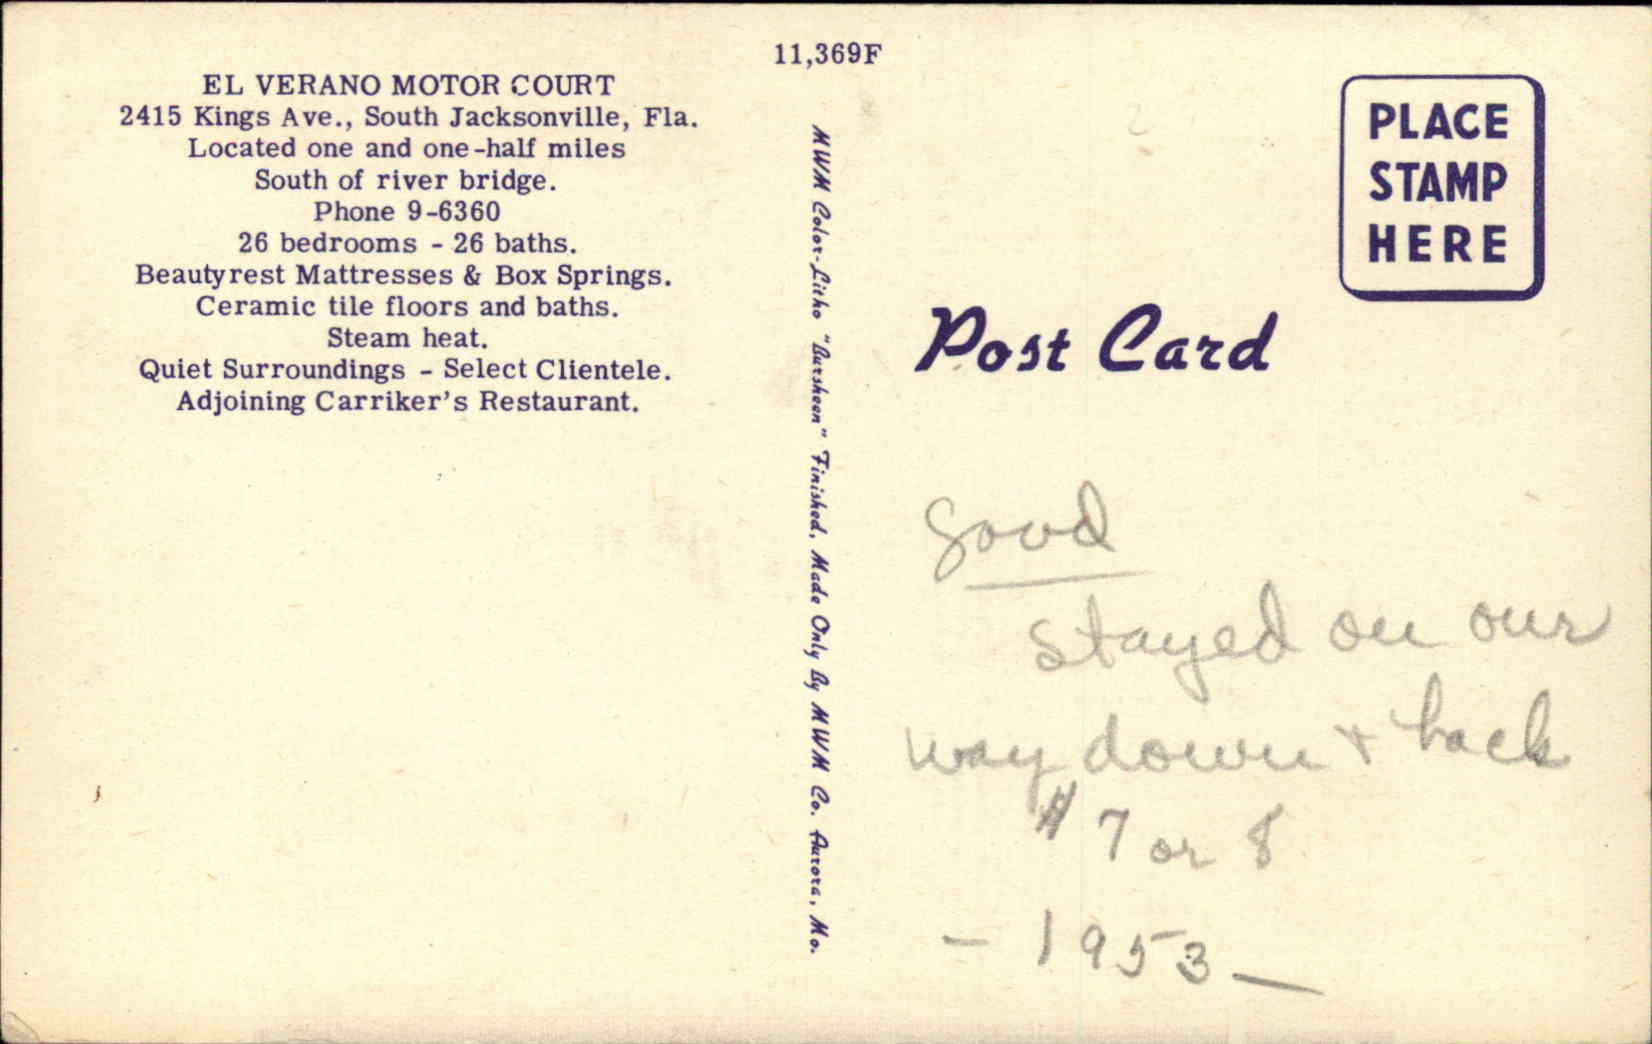 11,369F
EL VERANO MOTOR COURT
2415 Kings Ave., South Jacksonville, Fla.
Located one and one-half miles
South of river bridge.
Phone 9-6360
26 bedrooms - 26 baths.
Beautyrest Mattresses & Box Springs.
Ceramic tile floors and baths.
Steam heat.
Quiet Surroundings - Select Clientele.
Adjoining Carriker's Restaurant.
MWM Color-Litho "Bursheen" Finished, Made Only By MWM Co. Aurora, Mo.
PLACE
STAMP
HERE
Post Card
Good
stayed on our
way down + back
$7 or 8
- 1953 -